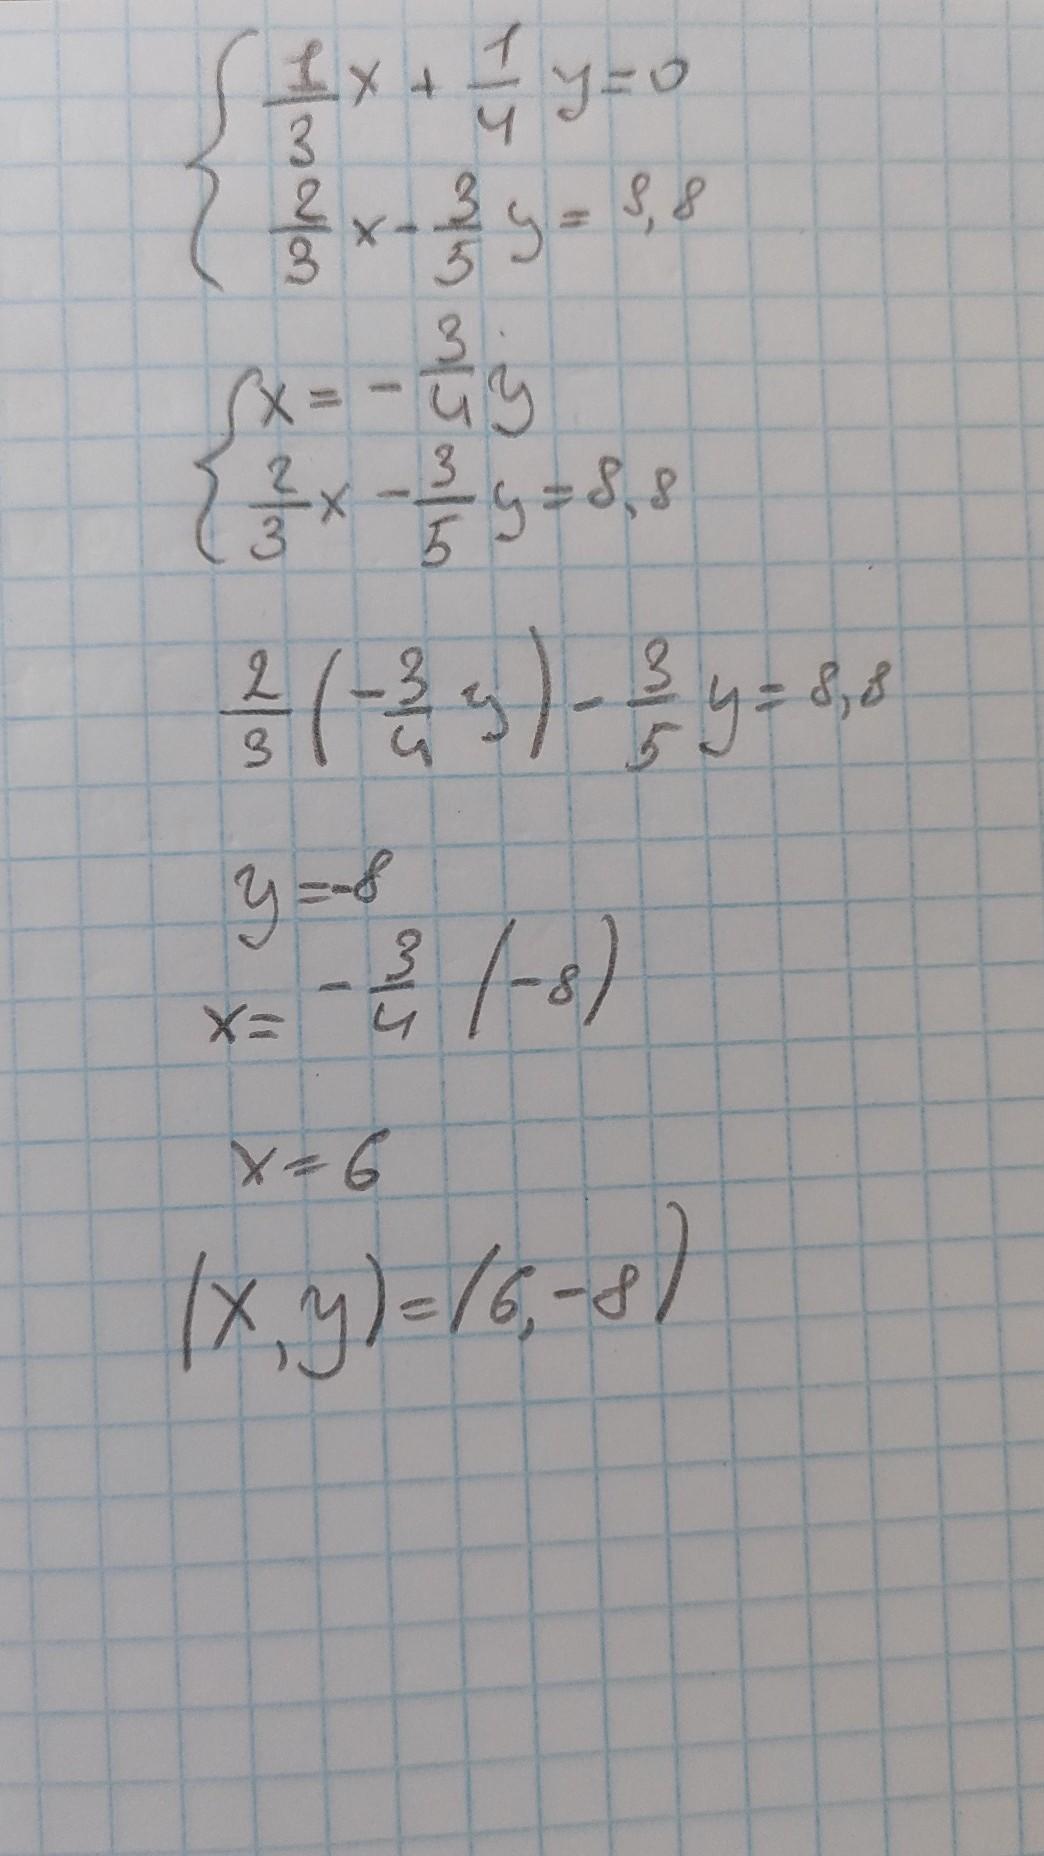 { 1/3 x + 1/4 y = 0
2/3 x - 3/5 y = 8,8
{ x = - 3/4 y
2/3 x - 3/5 y = 8,8
2/3 (- 3/4 y) - 3/5 y = 8,8
y = -8
x = - 3/4 (-8)
x = 6
(x, y) = (6, -8)